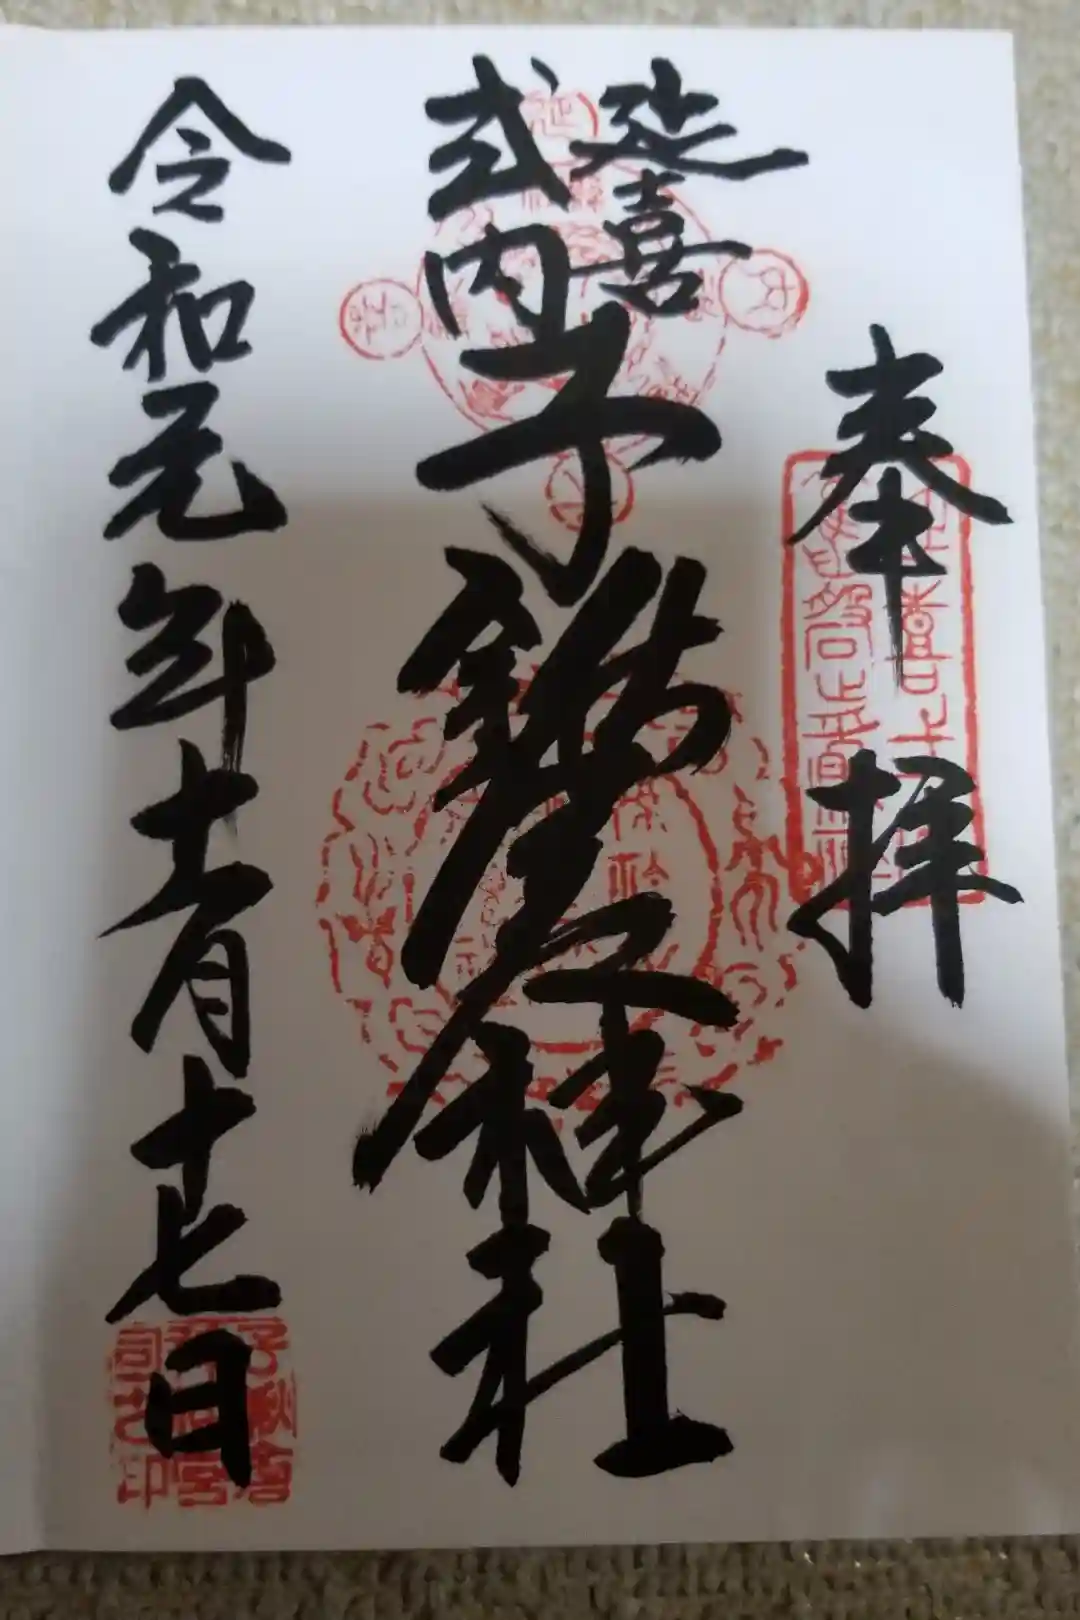 奉拝
延喜
式内
子鍬倉神社
令和元年十一月十七日
子鍬倉
神社宮
司之印